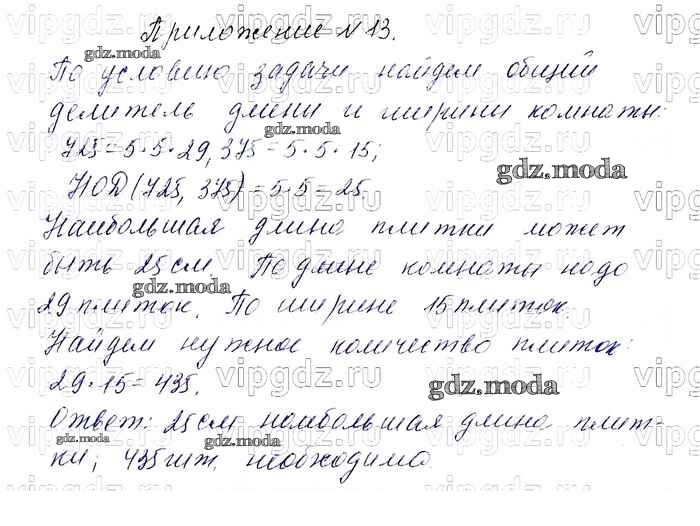 Приложение №13.
По условию задачи найдем общий
делитель длины и ширины комнаты:
725=5·5·29, 375=5·5·15;
НОД(725, 375)=5·5=25.
Наибольшая длина плитки может
быть 25см. По длине комнаты надо
29 плиток. По ширине 15 плиток.
Найдем нужное количество плиток:
29·15=435.
Ответ: 25см наибольшая длина плит-
ки, 435 шт. необходимо